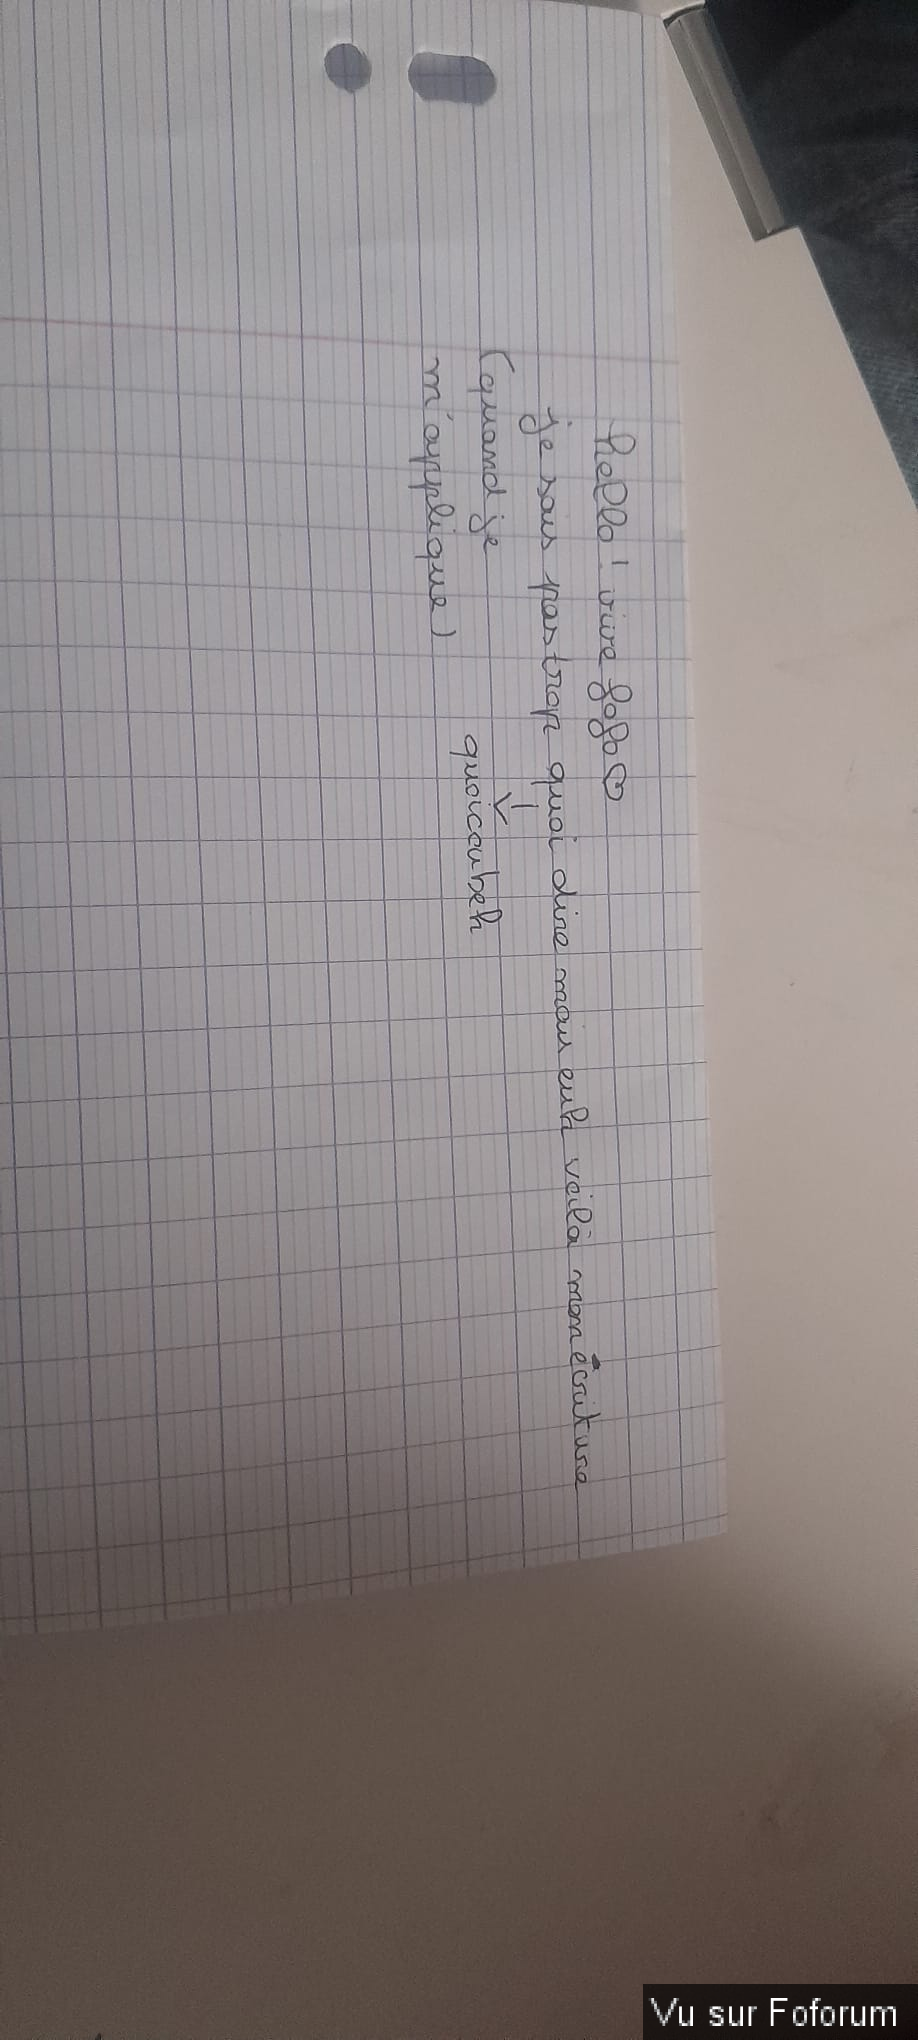 hello ! vive fofo♡
je sais pas trop quoi dire mais euh voilà mon écriture
(quand je
m'applique)
↓
quoicoubeh
Vu sur Foforum